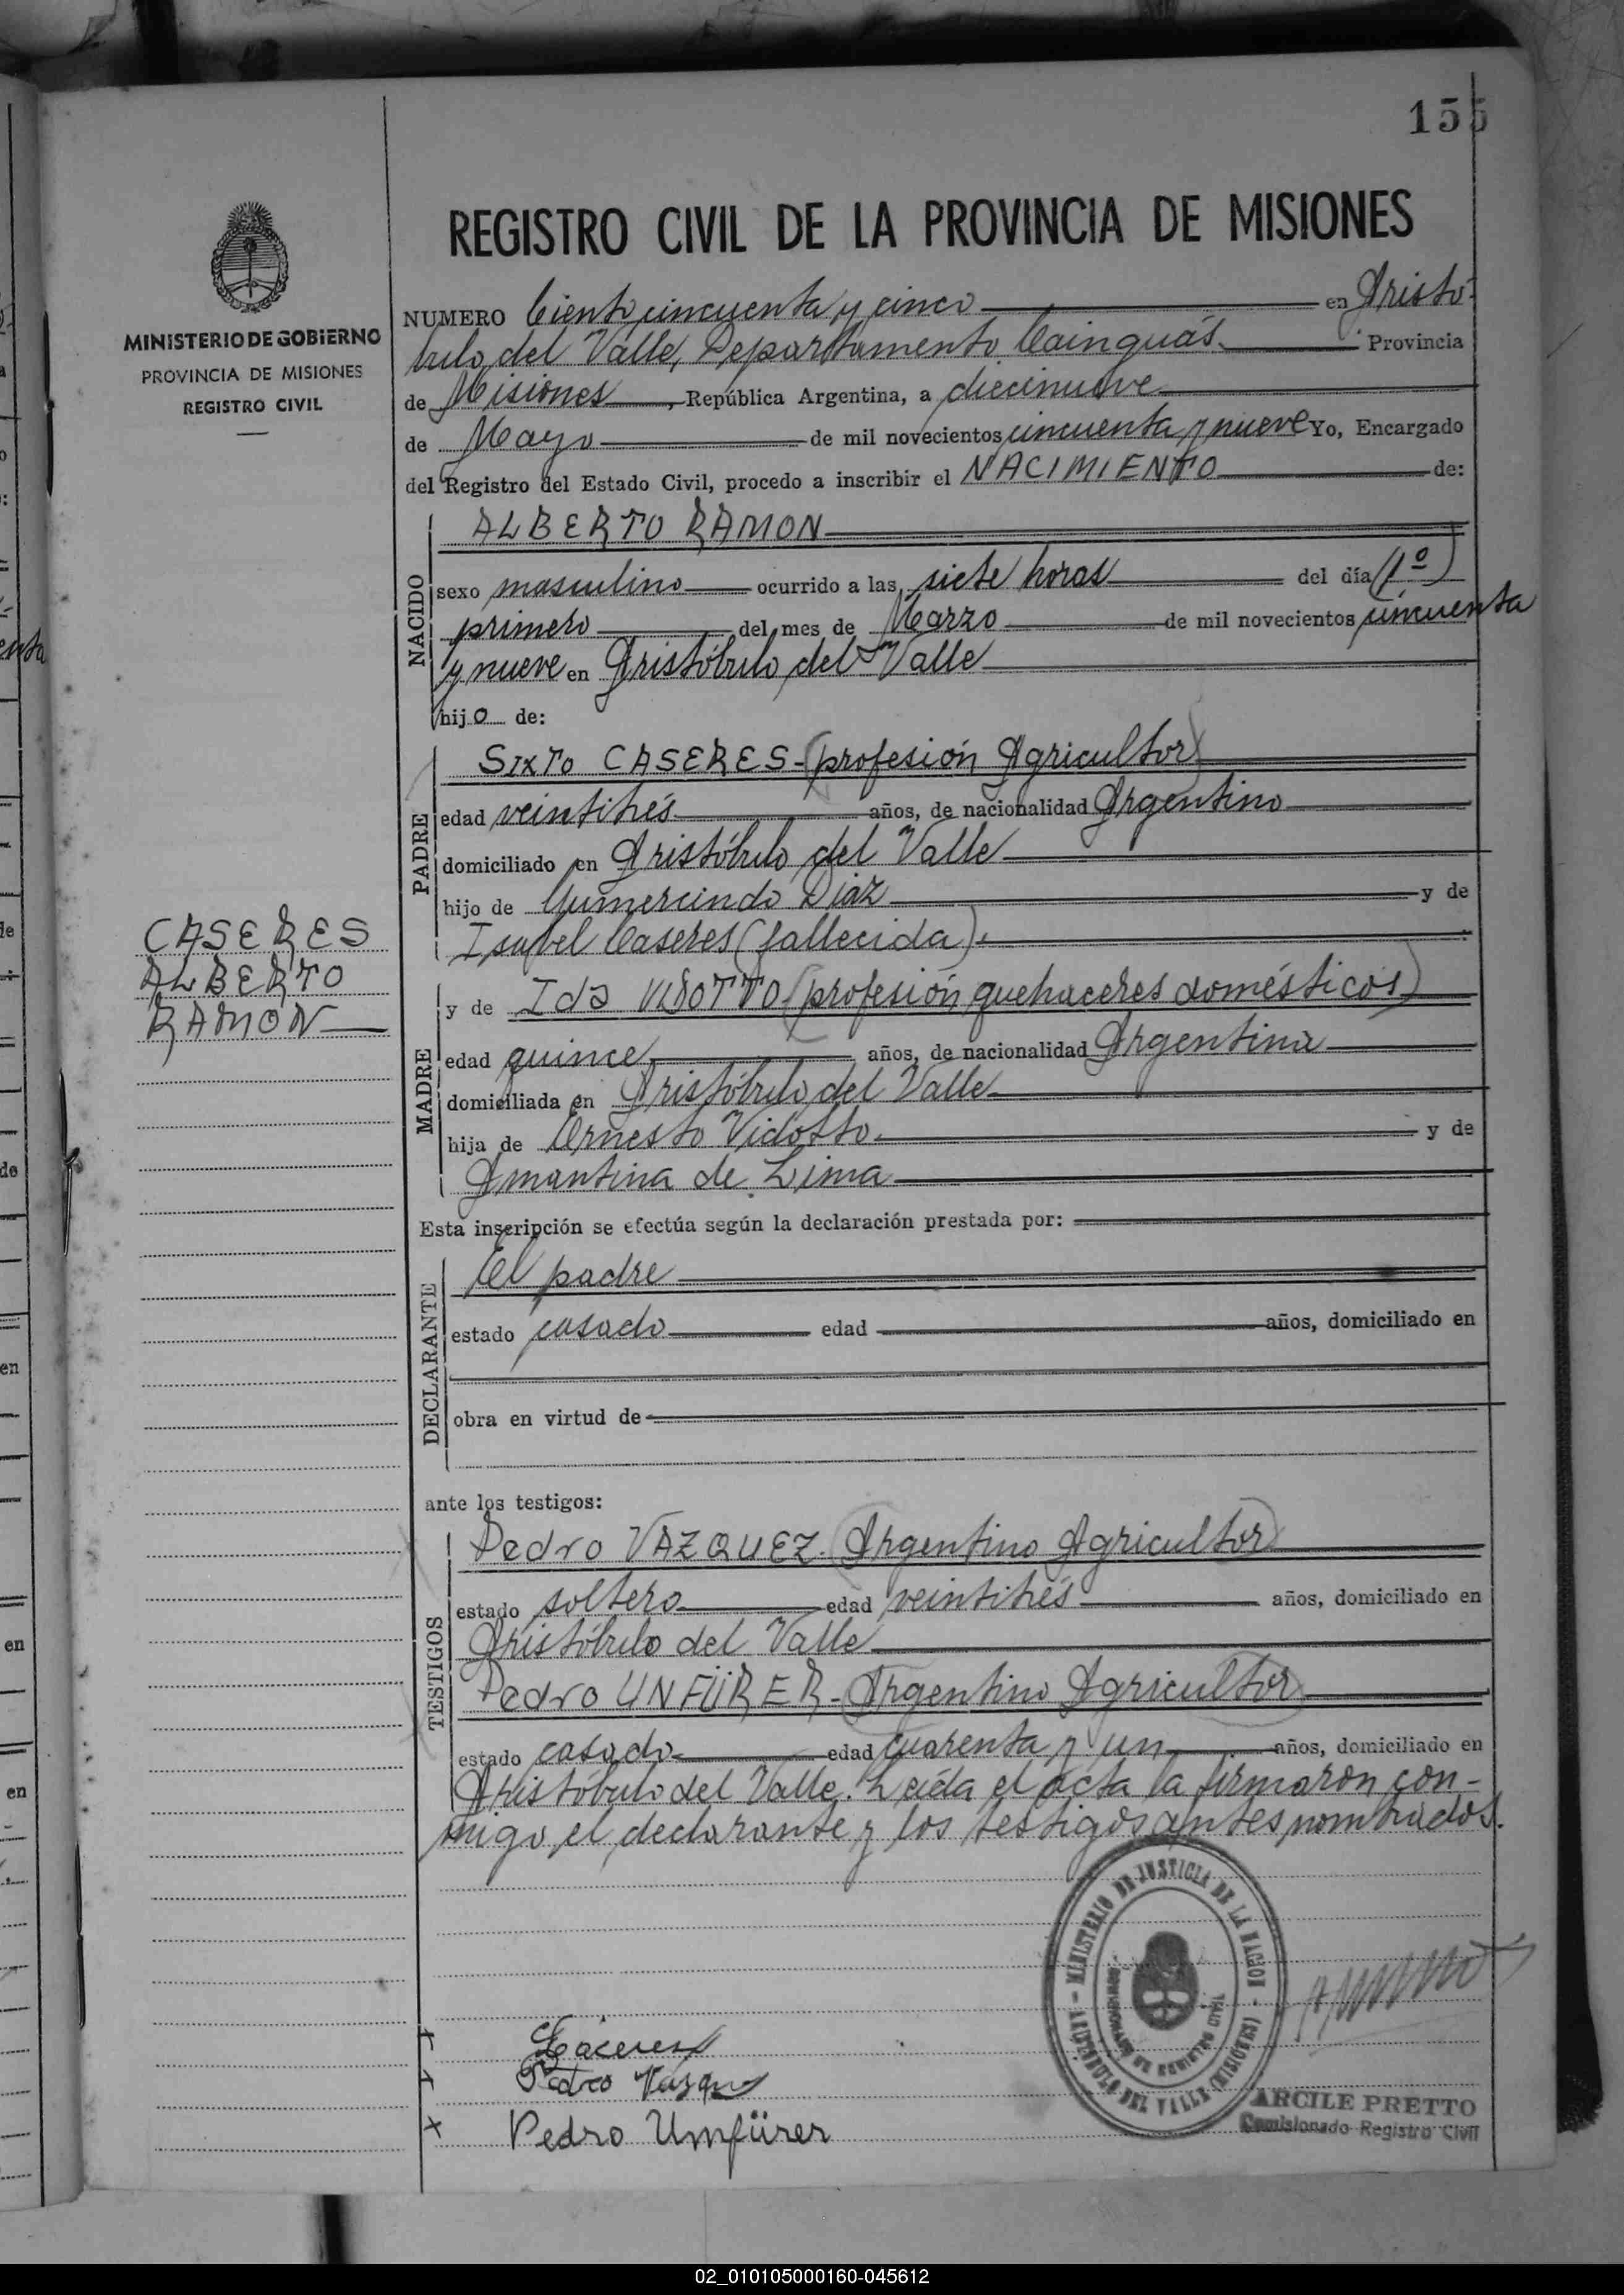 155
REGISTRO CIVIL DE LA PROVINCIA DE MISIONES
MINISTERIO DE GOBIERNO
PROVINCIA DE MISIONES
REGISTRO CIVIL
NUMERO Ciento cincuenta y cinco en Aristó-
bulo del Valle, Departamento Cainguás. Provincia
de Misiones, República Argentina, a diecinueve
de Mayo de mil novecientos cincuenta y nueve Yo, Encargado
del Registro del Estado Civil, procedo a inscribir el NACIMIENTO de:
NACIDO
ALBERTO RAMON
sexo masculino ocurrido a las siete horas del día (1º)
primero del mes de Marzo de mil novecientos cincuenta
y nueve en Aristóbulo del Valle
hijo de:
PADRE
SIXTO CASERES - (profesión Agricultor)
edad veintitrés años, de nacionalidad Argentino
domiciliado en Aristóbulo del Valle
hijo de Gumercindo Diaz y de
Isabel Caseres (fallecida).
CASERES
ALBERTO
RAMON
MADRE
y de Ida VIDOTTO (profesión quehaceres domésticos)
edad quince años, de nacionalidad Argentina
domiciliada en Aristóbulo del Valle
hija de Ernesto Vidotto. y de
Amantina de Lima
Esta inscripción se efectúa según la declaración prestada por:
DECLARANTE
El padre
estado casado edad años, domiciliado en
obra en virtud de
ante los testigos:
TESTIGOS
Pedro VAZQUEZ. (Argentino Agricultor)
estado soltero edad veintitrés años, domiciliado en
Aristóbulo del Valle
Pedro UNFÜRER - (Argentino Agricultor)
estado casado edad cuarenta y un años, domiciliado en
Aristóbulo del Valle. Leída el acta la firmaron con-
migo el declarante y los testigos antes nombrados.
MINISTERIO DE JUSTICIA DE LA NACION - ARISTOBULO DEL VALLE (MISIONES)
Cáceres
Pedro Vazquez
Pedro Umfürer
ARCILE PRETTO
Comisionado Registro Civil
02_010105000160-045612